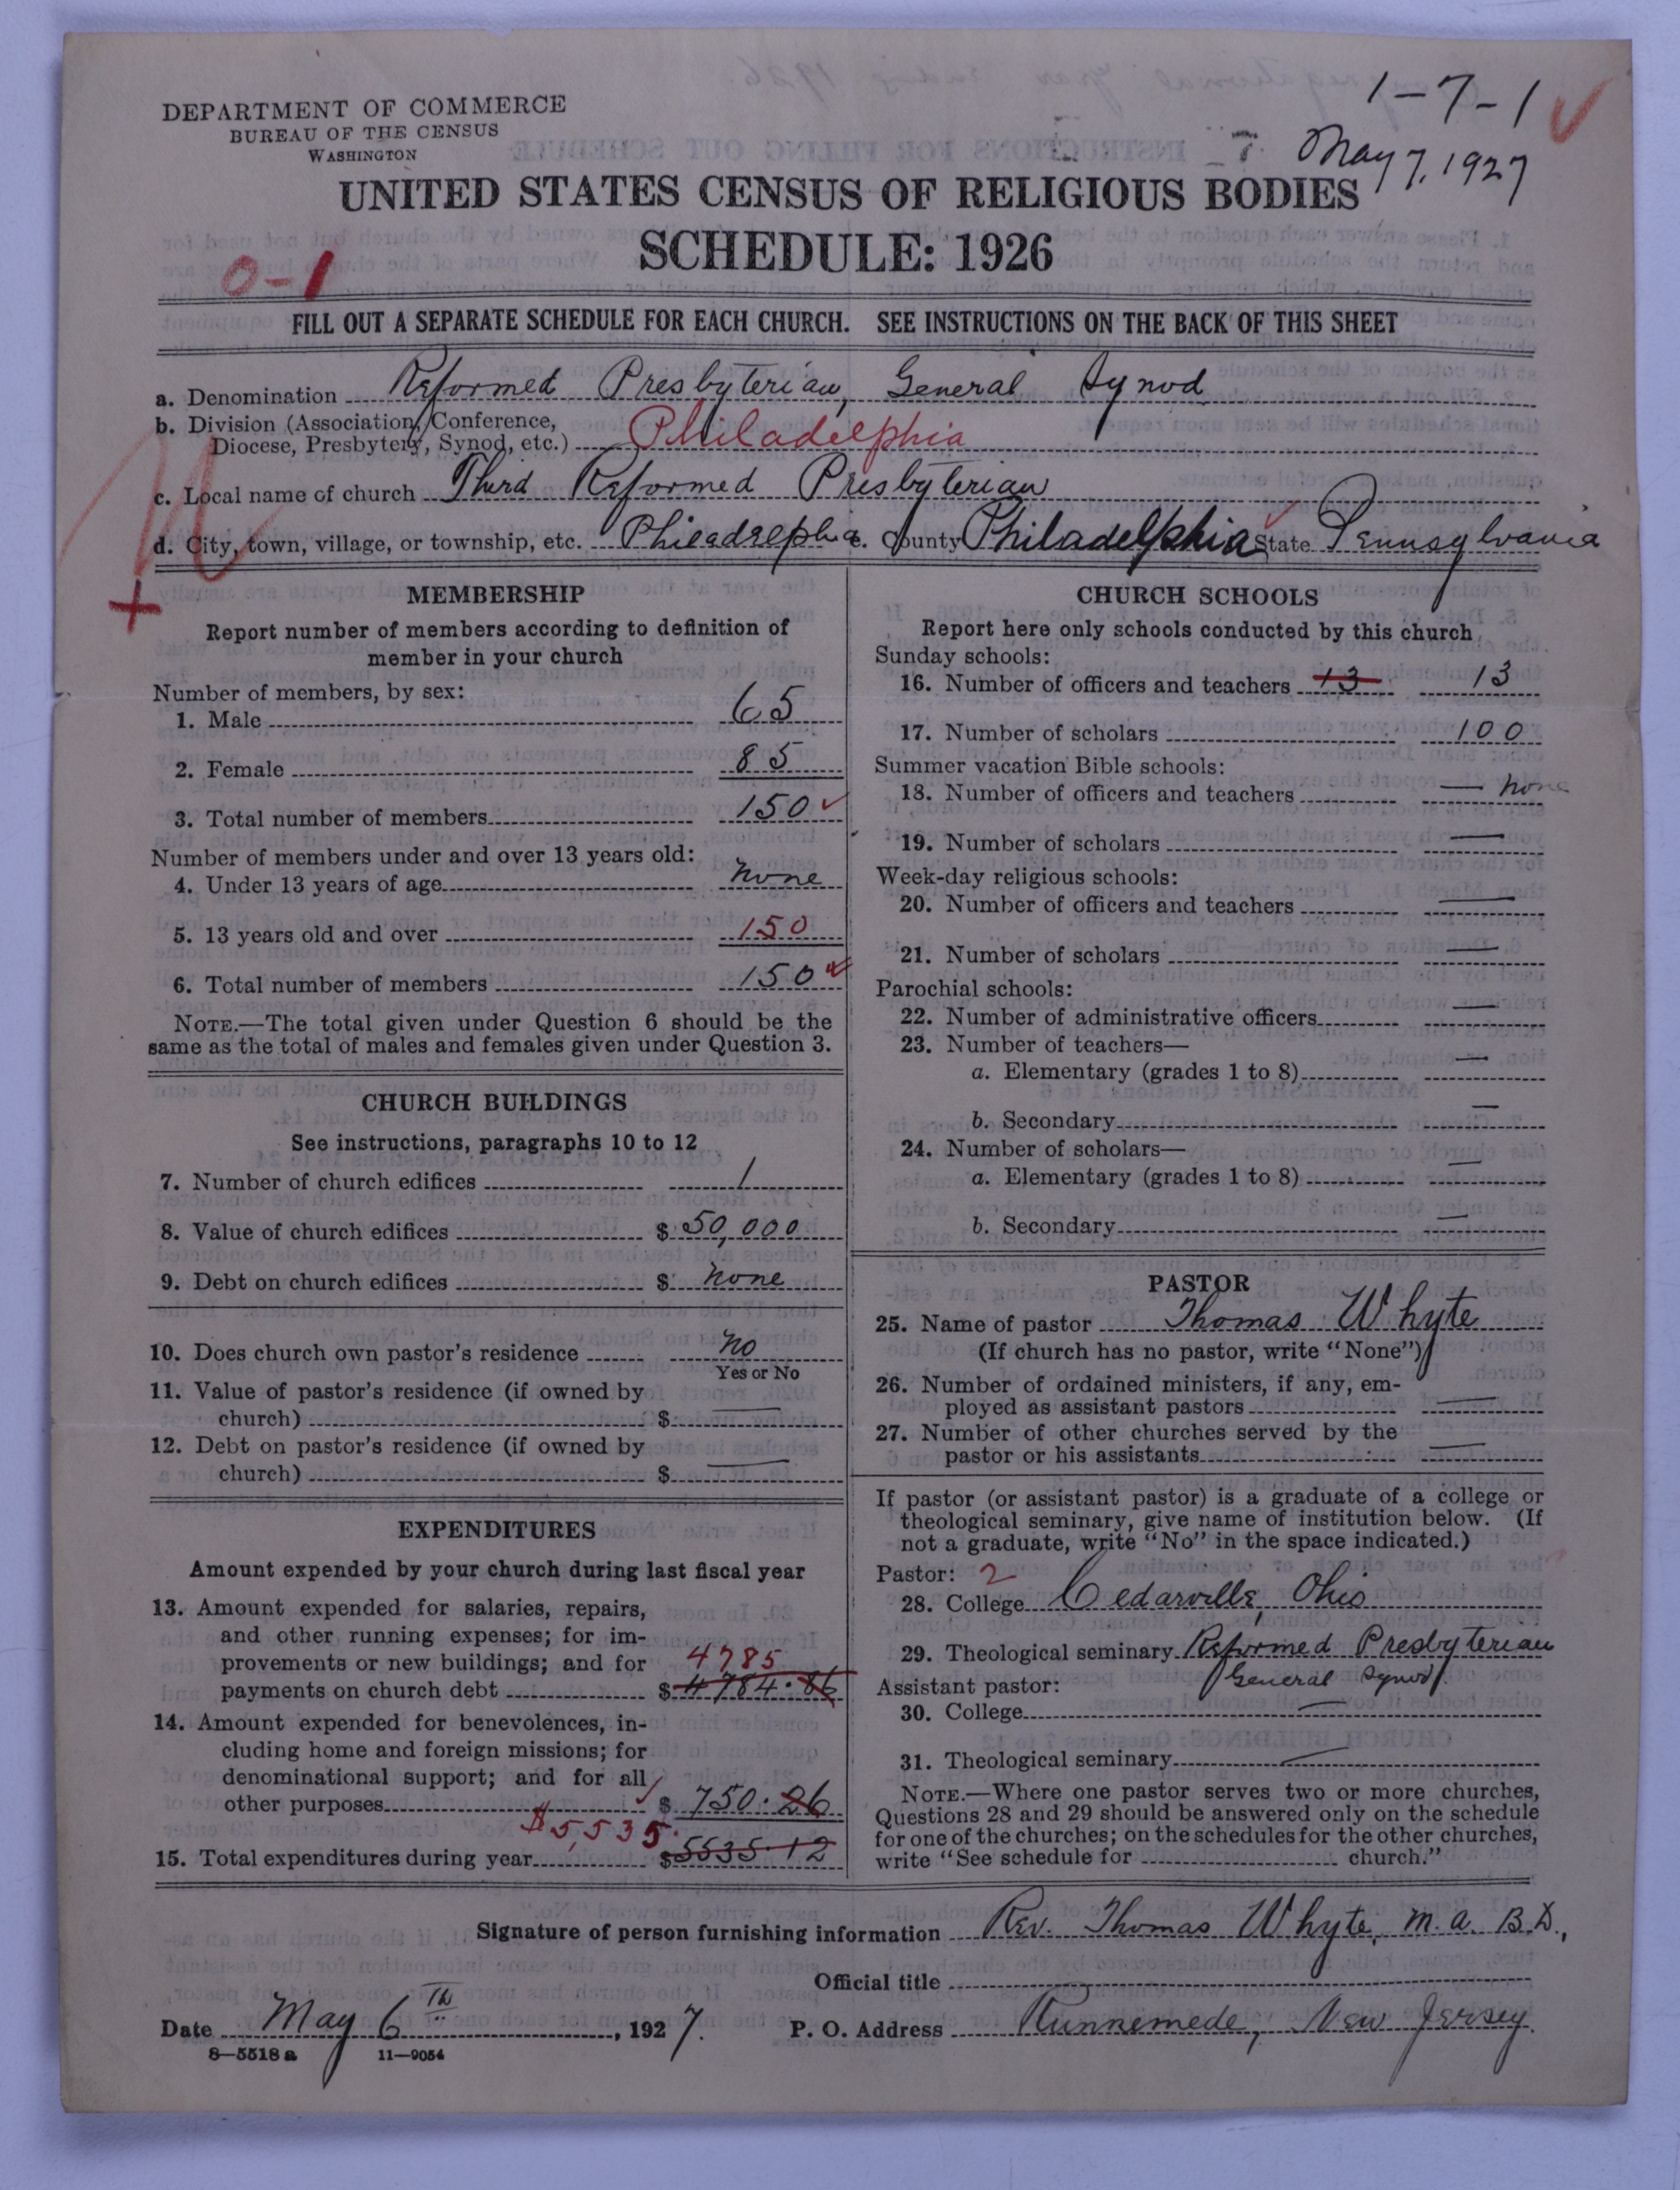 1-7-1
DEPARTMENT OF COMMERCE
BUREAU OF THE CENSUS
WASHINGTON
May 7, 1927
UNITED STATES CENSUS OF RELIGIOUS BODIES
SCHEDULE: 1926
0-1
FILL OUT A SEPARATE SCHEDULE FOR EACH CHURCH. SEE INSTRUCTIONS ON THE BACK OF THIS SHEET
a. Denomination Reformed Presbyterian, General Synod
b. Division (Association, Conference,
Diocese, Presbytery, Synod, etc.) Philadelphia
c. Local name of church Third Reformed Presbyterian
d. City, town, village, or township, etc. Philadelphia e. County Philadelphia State Pennsylvania
MEMBERSHIP
Report number of members according to definition of
member in your church
Number of members, by sex:
1. Male 65
2. Female 85
3. Total number of members 150
Number of members under and over 13 years old:
4. Under 13 years of age none
5. 13 years old and over 150
6. Total number of members 150
NOTE.—The total given under Question 6 should be the
same as the total of males and females given under Question 3.
CHURCH BUILDINGS
See instructions, paragraphs 10 to 12
7. Number of church edifices 1
8. Value of church edifices $ 50,000
9. Debt on church edifices $ none
10. Does church own pastor's residence no
Yes or No
11. Value of pastor's residence (if owned by
church) $ —
12. Debt on pastor's residence (if owned by
church) $ —
EXPENDITURES
Amount expended by your church during last fiscal year
13. Amount expended for salaries, repairs,
and other running expenses; for im-
provements or new buildings; and for 4785
payments on church debt $ 4784.86
14. Amount expended for benevolences, in-
cluding home and foreign missions; for
denominational support; and for all
other purposes $ 750.26
$5,535
15. Total expenditures during year $5535.12
CHURCH SCHOOLS
Report here only schools conducted by this church
Sunday schools:
16. Number of officers and teachers 13 13
17. Number of scholars 100
Summer vacation Bible schools:
18. Number of officers and teachers — none
19. Number of scholars —
Week-day religious schools:
20. Number of officers and teachers —
21. Number of scholars —
Parochial schools:
22. Number of administrative officers —
23. Number of teachers—
a. Elementary (grades 1 to 8) —
b. Secondary —
24. Number of scholars—
a. Elementary (grades 1 to 8) —
b. Secondary —
PASTOR
25. Name of pastor Thomas Whyte
(If church has no pastor, write "None")
26. Number of ordained ministers, if any, em-
ployed as assistant pastors —
27. Number of other churches served by the
pastor or his assistants —
If pastor (or assistant pastor) is a graduate of a college or
theological seminary, give name of institution below. (If
not a graduate, write "No" in the space indicated.)
Pastor: 2
28. College Cedarville, Ohio
29. Theological seminary Reformed Presbyterian
General Synod
Assistant pastor:
30. College —
31. Theological seminary —
NOTE.—Where one pastor serves two or more churches,
Questions 28 and 29 should be answered only on the schedule
for one of the churches; on the schedules for the other churches,
write "See schedule for church."
Signature of person furnishing information Rev. Thomas Whyte, M.A. B.D.,
Official title
Date May 6th, 1927. P. O. Address Runnemede, New Jersey.
8—5518 a 11—9054